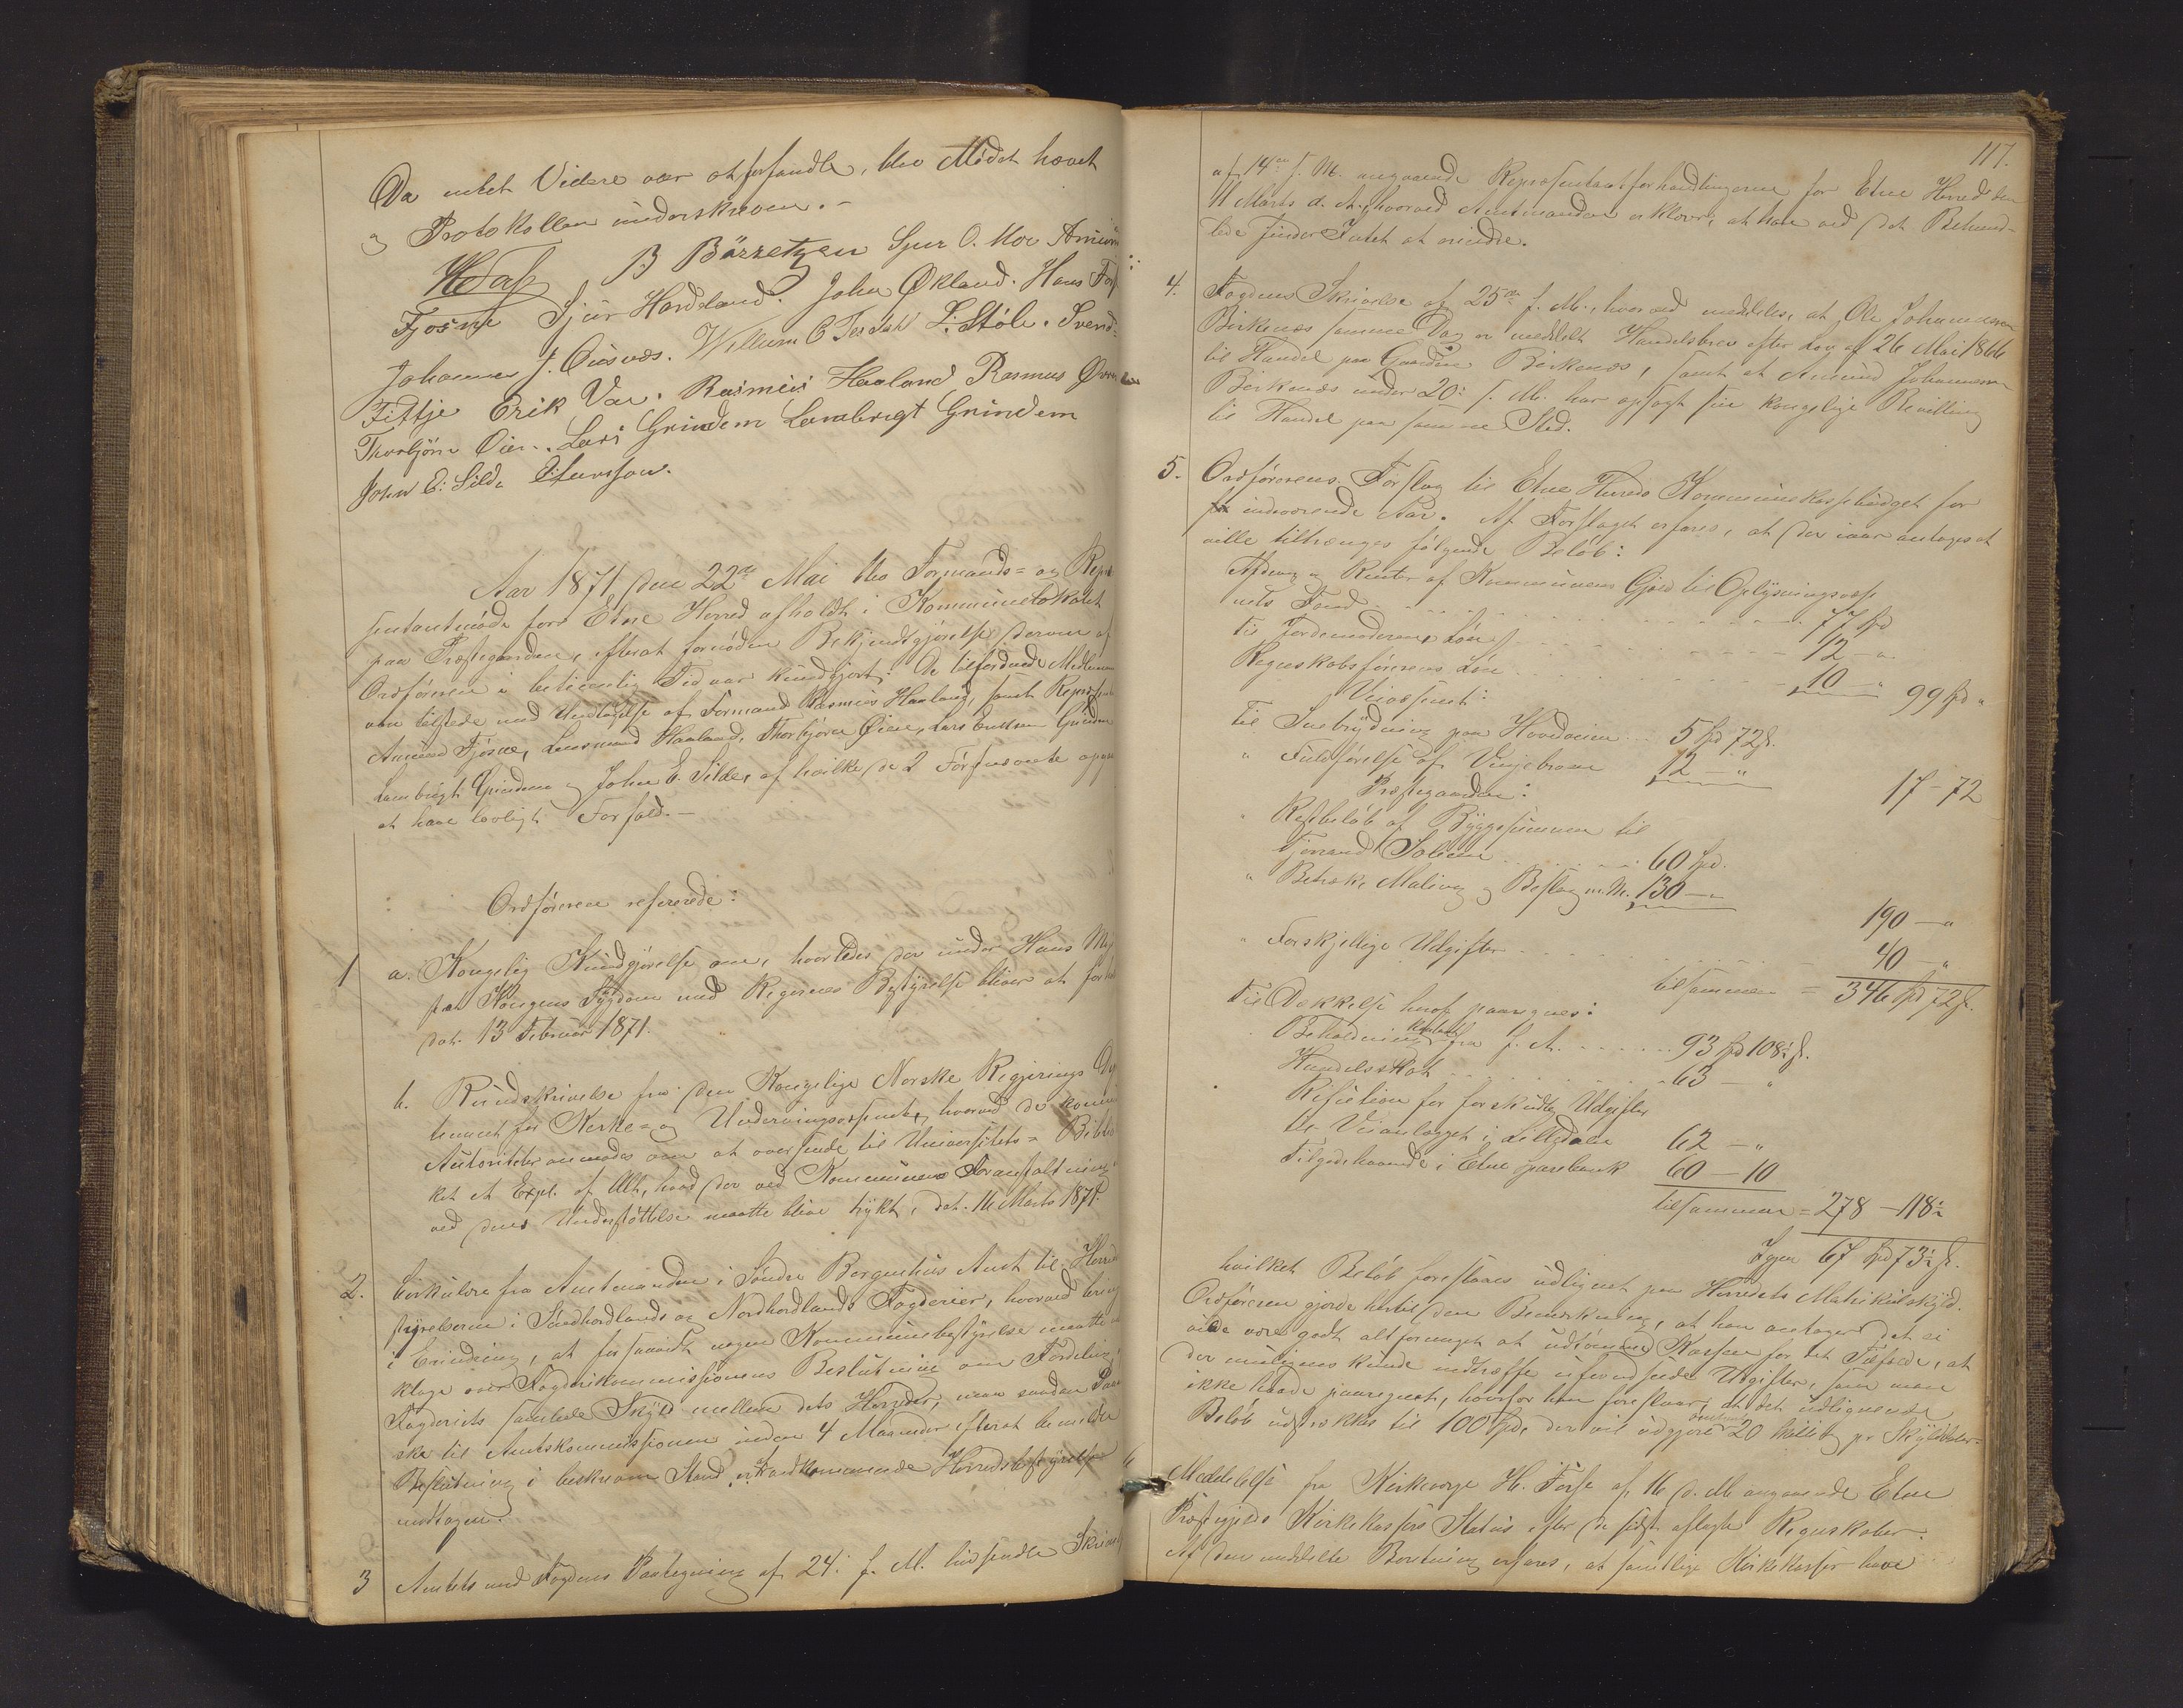 Da intet Videre var at forhandle, blev Mødet hævet
og Protokollen underskreven. –
B Børretzen Sjur O. Moe Amund
Fjøsne Sjur Hardeland. John Økland. Hans
Johannes J. Øiesnes. Willum O L. Støle. Svend
Erik Vae. Rasmus Haaland Rasmus
Thorbjørn Øien. Lars Grindem Lambrigt Grindem
John E. Silde
Aar 1871 den 22de Mai blev Formands- og Repræ
sentantmøde for Etne Herred afholdt i Kommunelokalet
paa Præstegaarden, efterat fornøden Bekjendtgjørelse derom af
Ordføreren i betimelig Tid var kundgjort. De Medlemmer
vare tilstede med Undtagelse af Formand Rasmus Haaland, samt Repræsent
Amund Fjøsne, Haaland, Thorbjørn Øien, Lars Grindem
Lambrigt Grindem og John E. Silde, af hvilke de 2 Førstnævnte
at have lovligt Forfald. –
Ordføreren refererede:
1 a. Kongelig Kundgjørelse om, hvorledes der under Hans Maj
Kongens Sygdom med Rigernes Bestyrelse bliver at forholde
dat. 13 Februar 1871.
b. Rundskrivelse fra den Kongelige Norske Regjerings De
tement for Kirke- og Undervisningsvæsenet, hvorved de
Autoriteter anmodes om at oversende til Universitets-Biblio
ket et Expl. af Alt, hvad der ved Kommunens Foranstaltning
ved dens Understøttelse maatte blive trykt, dat. 11 Marts 1871.
2. Cirkulære fra Amtmanden i Søndre Bergenhus Amt til Herreds
styrelserne i Søndhordlands og Nordhordlands Fogderier, hvorved bringes
i Erindring, at forsaavidt nogen Kommunebestyrelse maatte
klage over Fogderikommissionens Beslutning om Fordeling
Fogderiets samlede Skyld mellem dets Herreder, maa saadan
ske til Amtskommissionen inden 4 Maaneder efterat bemeldte
Beslutning i bekræftet Stand er vedkommende Herredsbestyrelse
modtagen.
3 Amtets med Fogdens Paategning af 24. f. M. indsendte Skrivelse
117.
af 14de f. M. angaaende Repræsentantforhandlingerne for Etne Herred den
11 Marts d. A., hvorved Amtmanden erklærer, at han ved det Behand-
lede finder Intet at erindre.
4. Fogdens Skrivelse af 25de f. M., hvorved meddeles, at Ole Johannesen
Birkenæs samme Dag er meddelt Handelsbrev efter Lov af 26 Mai 1866
til Handel paa Gaarden Birkenæs, samt at Amund Johannesen
Birkenæs under 20. f. M. har opsagt sin kongelige Bevilling
til Handel paa samme Sted.
5. Ordførerens Forslag til Etne Herreds Kommunekassebudget for
indeværende Aar. Af Forslaget erfares, at der iaar antages at
ville tiltrænges følgende Beløb:
Afdrag og Renter af Kommunens Gjæld til Oplysningsvæse
nets Fond . . . . . . 77 Spd
Til Jordemoderens Løn . . . . . . 12 – "
Regnskabsførerens Løn . . . . . . 10 – " 99 Spd "
Veivæsenet:
Til Snebrydning paa Hovedveien . . 5 Spd 72 s.
" Fuldførelse af Vinjebroen 12 – " 17 – 72
Præstegaarden:
" Restbeløb af Byggesummen til
Fjøs Salien . . . . . . 60 Spd.
" Betræk, Maling og Beslag m. M. 130 – " 190 – "
" Forskjellige Udgifter . . . . . . 40 – "
tilsammen = 346 Spd 72 s.
Til Dækkelse heraf paaregnes:
Beholdning kontant fra f. A. . . . . . 93 Spd 108½ s.
Handelsskat . . . . . . 63 – "
Refusion for forskudte Udgifter
til Veianlægget i Litledalen 62 – "
Tilgodehavende i Etne Sparebank 60 – 10
tilsammen = 278 – 118½
Igjen 67 Spd 73½ s.
hvilket Beløb foreslaaes udlignet paa Herredets Matrikulskyld.
Ordføreren gjorde hertil den Bemærkning, at han antager det ei
vilde være godt altformeget at udtømme Kassen for det Tilfælde, at
der muligens kunde indtræffe uforudseede Udgifter, som man
ikke havde paaregnet, hvorfor han foreslaar, at det udlignende
Beløb udstrækkes til 100 Spd, der vil udgjøre omtrent 20 Skilling pr Skylddaler.
6 Meddelelse fra Kirkeverge H. Førse af 16 d. M. angaaende Etne
Præstegjelds Kirkekassers Status efter de sidst aflagte Regnskaber.
Af den meddelte Beretning erfares, at samtlige Kirkekasser have